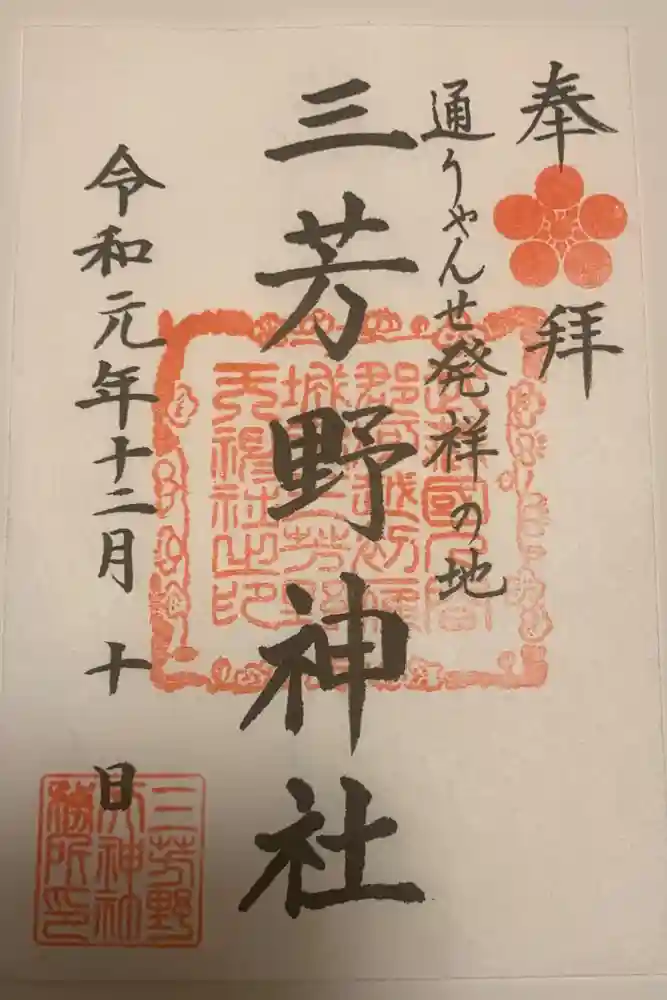 奉拝
通りゃんせ発祥の地
三芳野神社
令和元年十二月十日
三芳野
天神社